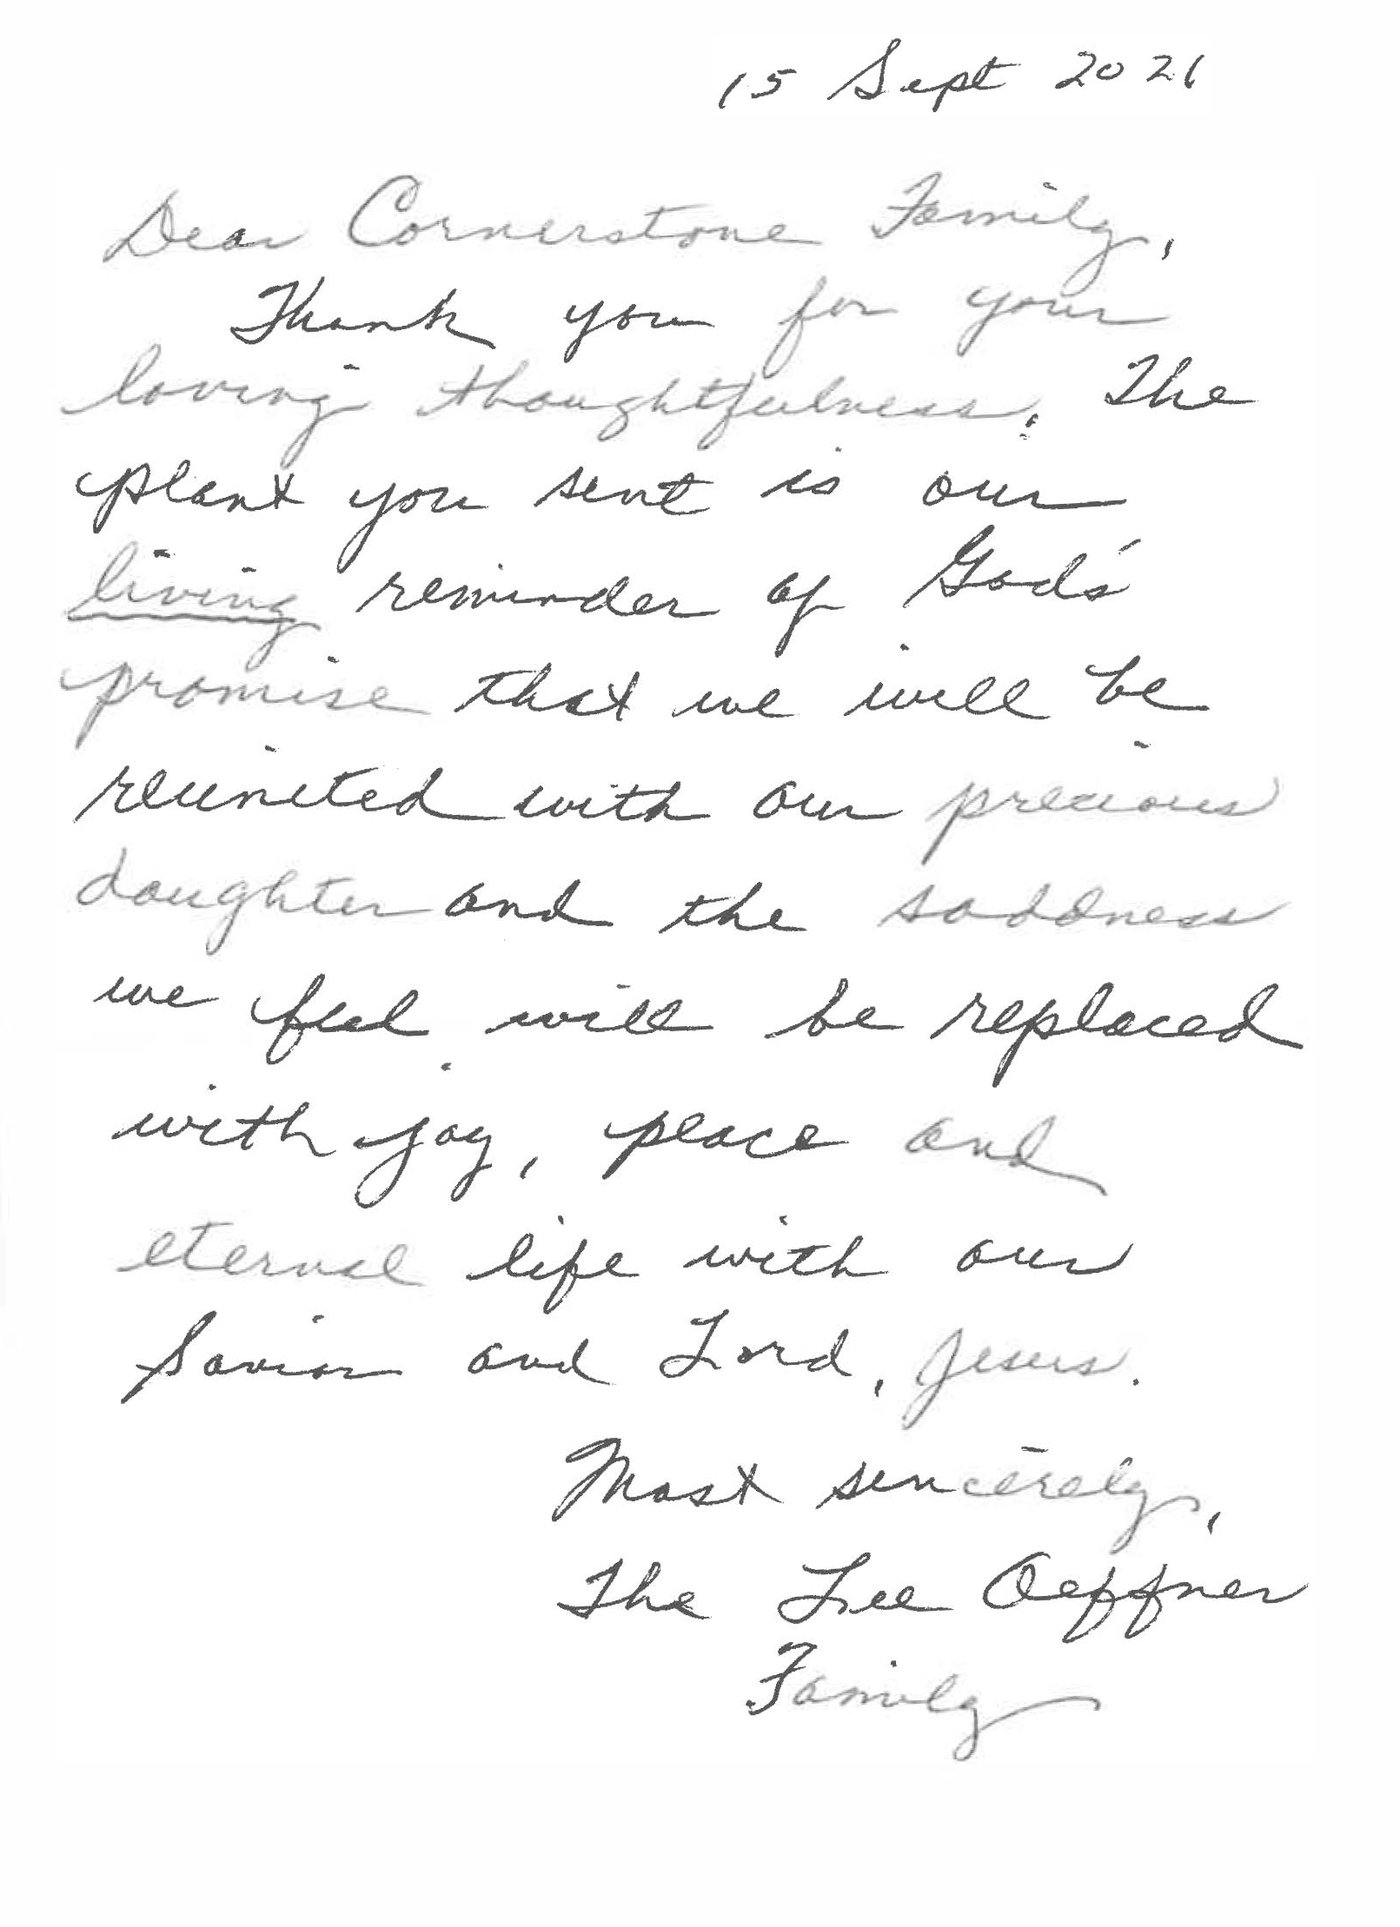 15 Sept 2021
Dear Cornerstone Family,
Thank you for your
loving thoughtfulness. The
plant you sent is our
living reminder of God's
promise that we will be
reunited with our precious
daughter and the saddness
we feel will be replaced
with joy, peace and
eternal life with our
Savior and Lord, Jesus.
Most sincerely,
The Lee Oeffner
Family